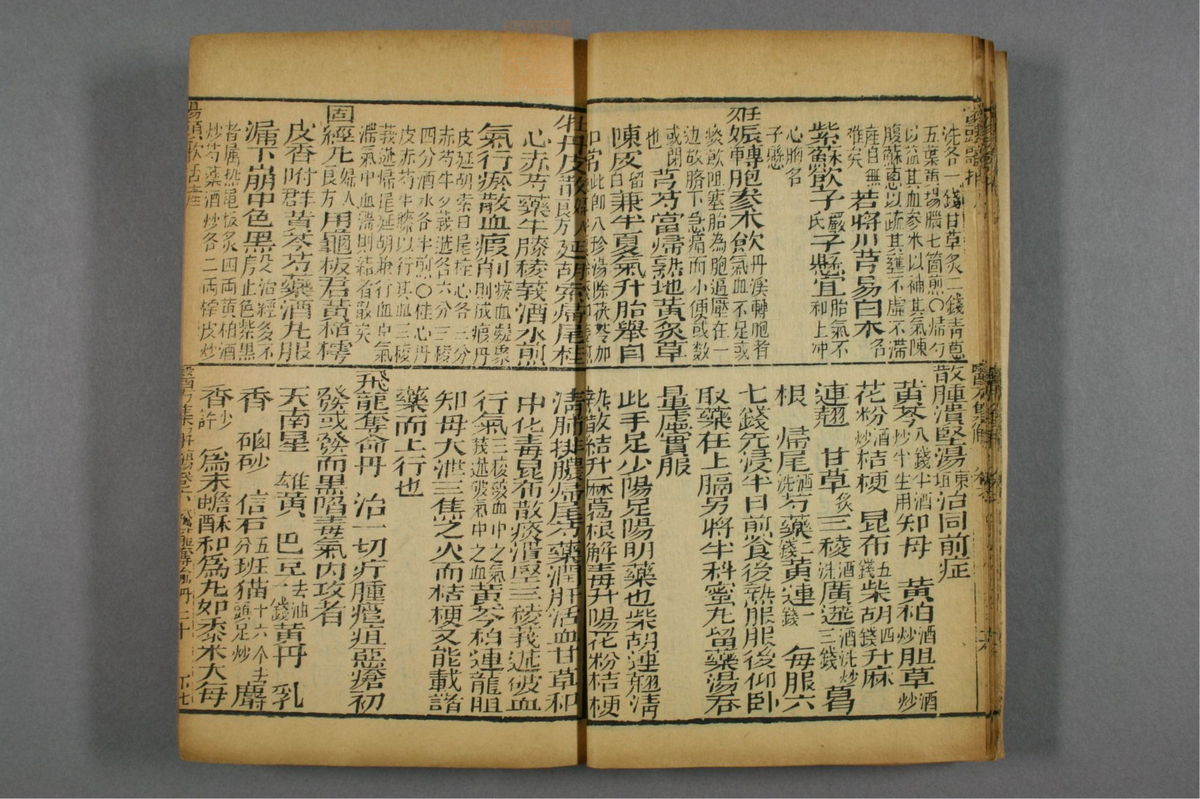 洗各一錢甘草炙一錢青蔥
五葉
以益其血參朮以補其氣陳
腹蘇蔥以疏其壅不虛不滯
產自無難矣 若將川芎易白朮 名
紫蘇飲子嚴氏子懸宜胎氣不和上冲
心胸名子懸
妊娠轉胞參朮飲丹溪轉胞者氣血不足或
痰飲阻塞胎為胞逼壓在一
邊故臍下急痛而小便或數
或閉也 芎芍當歸熟地黃炙草
陳皮留白兼半夏氣升胎舉自
如常此即八珍湯除茯苓加
牡丹皮散婦人良方延胡索歸尾桂
心赤芍藥牛膝稜莪酒水煎
氣行瘀散血瘕削瘀血凝聚則成瘕丹
皮延胡索歸尾桂心各三分
赤芍牛夕莪朮各六分三稜
四分酒水各半煎○桂心丹
皮赤芍牛膝以行其血三稜
莪朮歸尾延胡兼行血中氣
滯氣中血滯則結者散矣
固經丸婦人良方用龜板君黃栢樗
皮香附群黃芩芍藥酒丸服
漏下崩中色黑殷治經多不止色紫黑
者屬熱龜板炙四兩黃柏酒
炒芍藥酒炒各二兩樗皮炒
湯頭歌括
散腫潰堅湯東垣治同前症
黃芩八錢半酒炒半生用 知母 黃柏酒炒 胆草酒炒
花粉酒炒 桔梗 昆布五錢 柴胡四錢 升麻
連翹 甘草炙 三稜酒洗 廣茂酒洗炒三錢 葛
根 歸尾酒洗 芍藥二錢 黃連一錢 每服六
七錢先浸半日煎食後熱服服後仰臥
取藥在上膈另將半料蜜丸留藥湯吞
量虛實服
此手足少陽足陽明藥也柴胡連翹清
熱散結升麻葛根解毒升陽花粉桔梗
清肺排膿歸尾芍藥潤肝活血甘草和
中化毒昆布散痰潰堅三稜莪朮破血
行氣三稜破血中之氣莪朮破氣中之血黃芩栢連龍胆
知母大泄三焦之火而桔梗又能載諸
藥而上行也
飛龍奪命丹 治一切疔腫癰疽惡瘡初
發或發而黑陷毒氣內攻者
天南星 雄黃 巴豆去油一錢 黃丹 乳
香 硇砂 信石五分 班猫十六个去頭足炒 麝
香少許 為末蟾酥和為丸如黍米大每